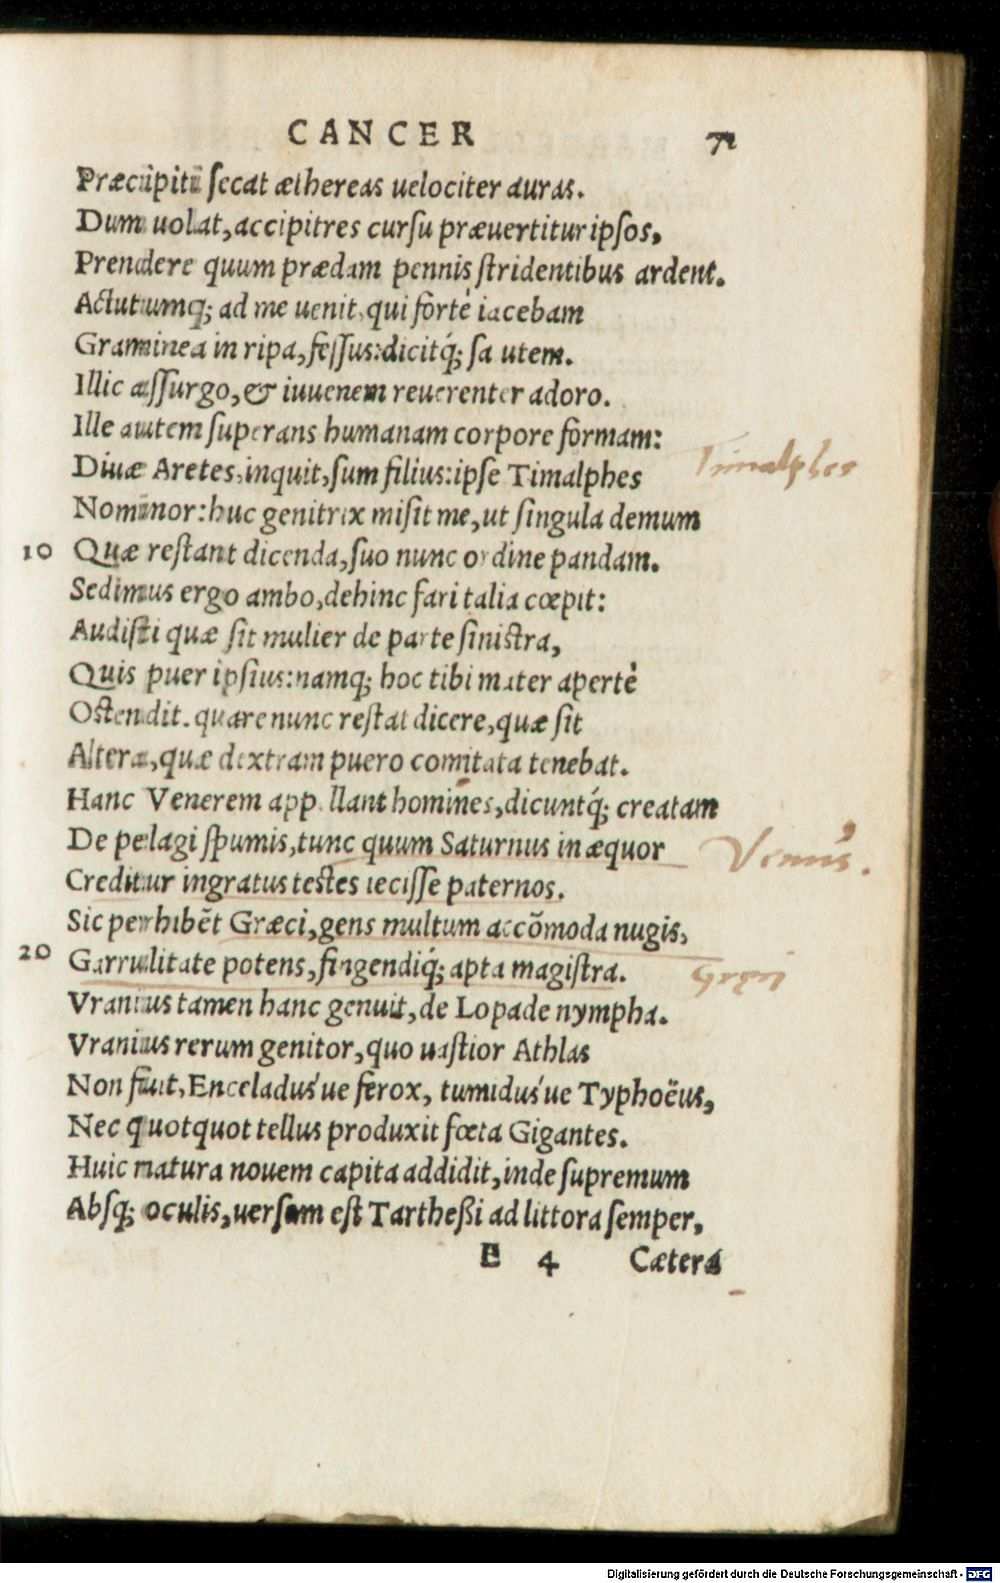 CANCER 71
Præcipiti secat æthereas uelociter auras.
Dum uolat, accipitres cursu præuertitur ipsos,
Prendere quum prædam pennis stridentibus ardent.
Actutumq; ad me uenit, qui fortè iacebam
Graminea in ripa, fessus: dicitq́; salutem.
Illic assurgo, & iuuenem reuerenter adoro.
Ille autem superans humanam corpore formam:
Timalphes
Diuæ Aretes, inquit, sum filius: ipse Timalphes
Nominor: huc genitrix misit me, ut singula demum
10 Quæ restant dicenda, suo nunc ordine pandam.
Sedimus ergo ambo, dehinc fari talia cœpit:
Audisti quæ sit mulier de parte sinistra,
Quis puer ipsius: namq; hoc tibi mater apertè
Ostendit. quare nunc restat dicere, quæ sit
Altera, quæ dextram puero comitata tenebat.
Hanc Venerem appellant homines, dicuntq́; creatam
De pelagi spumis, tunc quum Saturnus in æquor
Venus.
Creditur ingratus testes iecisse paternos.
Sic perhibēt Græci, gens multum accōmoda nugis,
20 Garrulitate potens, fingendiq́; apta magistra.
Gręci
Vranius tamen hanc genuit, de Lopade nympha.
Vranius rerum genitor, quo uastior Athlas
Non fuit, Enceladus'ue ferox, tumidus'ue Typhoëus,
Nec quotquot tellus produxit fœta Gigantes.
Huic natura nouem capita addidit, inde supremum
Absq; oculis, uersum est Tartheßi ad littora semper,
E 4 Cætera
Digitalisierung gefördert durch die Deutsche Forschungsgemeinschaft - DFG